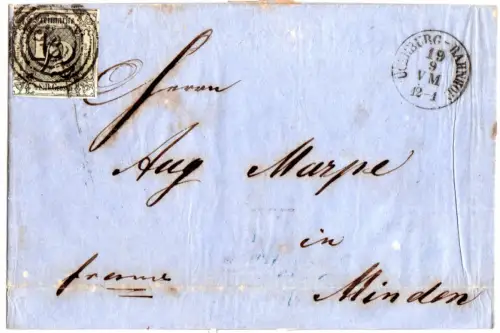 Freimarke
BÜCKEBURG-BAHNHOF
19
9
VM
12-1
Herrn
Aug Marpe
in
franco
Minden